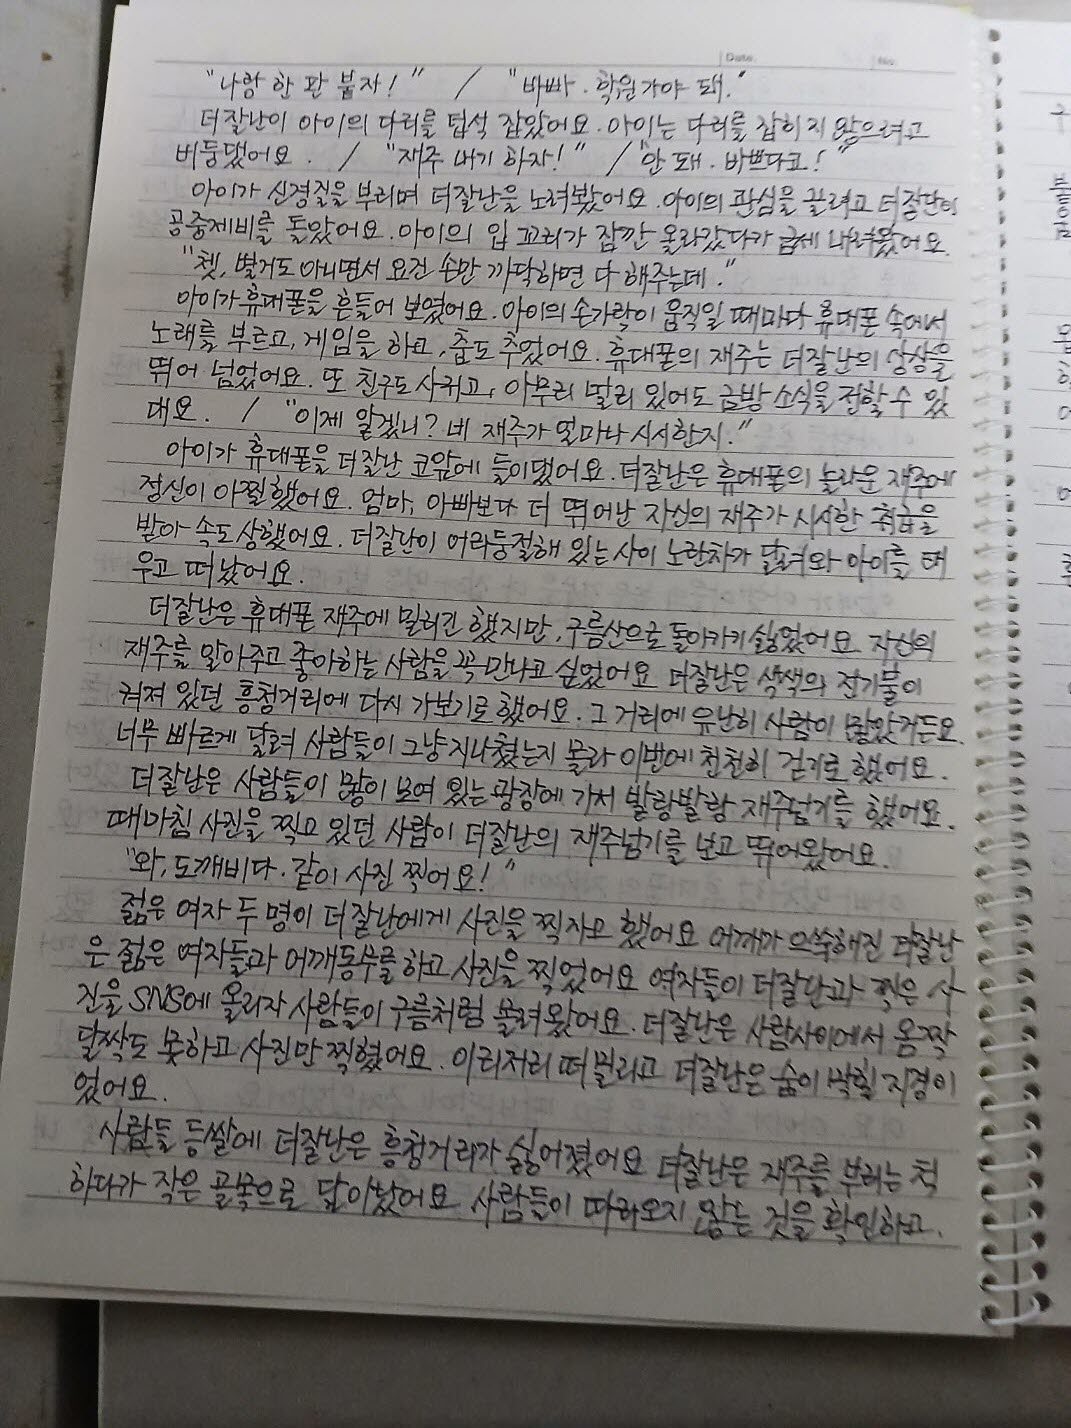 Date.
No.
"나랑 한 판 붙자!" / "바빠. 학원가야 돼."
더잘난이 아이의 다리를 덥석 잡았어요. 아이는 다리를 잡히지 않으려고
버둥댔어요. / "재주 내기 하자!" / "안 돼. 바쁘다고!"
아이가 신경질을 부리며 더잘난을 노려봤어요. 아이의 관심을 끌려고 더잘난이
공중제비를 돌았어요. 아이의 입 꼬리가 잠깐 올라갔다가 금세 내려왔어요.
"쳇, 별거도 아니면서 요건 손만 까닥하면 다 해주는데."
아이가 휴대폰을 흔들어 보였어요. 아이의 손가락이 움직일 때마다 휴대폰 속에서
노래를 부르고, 게임을 하고, 춤도 추었어요. 휴대폰의 재주는 더잘난의 상상을
뛰어 넘었어요. 또 친구도 사귀고, 아무리 멀리 있어도 금방 소식을 전할 수 있
대요. / "이제 알겠니? 네 재주가 얼마나 시시한지."
아이가 휴대폰을 더잘난 코앞에 들이댔어요. 더잘난은 휴대폰의 놀라운 재주에
정신이 아찔했어요. 엄마, 아빠보다 더 뛰어난 자신의 재주가 시시한 취급을
받아 속도 상했어요. 더잘난이 어리둥절해 있는 사이 노란차가 달려와 아이를 태
우고 떠났어요.
더잘난은 휴대폰 재주에 밀리긴 했지만, 구름산으로 돌아가기 싫었어요. 자신의
재주를 알아주고 좋아하는 사람을 꼭 만나고 싶었어요. 더잘난은 색색의 전기불이
켜져 있던 흥청거리에 다시 가보기로 했어요. 그 거리에 유난히 사람이 많았거든요.
너무 빠르게 달려 사람들이 그냥 지나쳤는지 몰라 이번에 천천히 걷기로 했어요.
더잘난은 사람들이 많이 모여 있는 광장에 가서 발랑발랑 재주넘기를 했어요.
때마침 사진을 찍고 있던 사람이 더잘난의 재주넘기를 보고 뛰어왔어요.
"와, 도깨비다. 같이 사진 찍어요!"
젊은 여자 두 명이 더잘난에게 사진을 찍자고 했어요. 어깨가 으쓱해진 더잘난
은 젊은 여자들과 어깨동무를 하고 사진을 찍었어요. 여자들이 더잘난과 찍은 사
진을 SNS에 올리자 사람들이 구름처럼 몰려왔어요. 더잘난은 사람사이에서 옴짝
달싹도 못하고 사진만 찍혔어요. 이리저리 떠밀리고 더잘난은 숨이 막힐 지경이
었어요.
사람들 등쌀에 더잘난은 흥청거리가 싫어졌어요. 더잘난은 재주를 부리는 척
하다가 작은 골목으로 달아났어요. 사람들이 따라오지 않는 것을 확인하고,